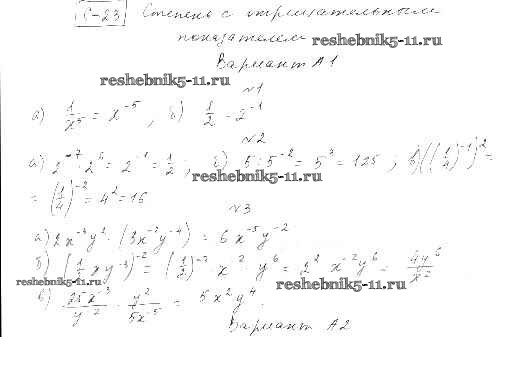 С-23 Степень с отрицательным
показателем reshebnik5-11.ru
Вариант А1
reshebnik5-11.ru
№1
а) 1/x⁵ = x⁻⁵, б) 1/2 = 2⁻¹
№2
а) 2⁻⁷·2⁶ = 2⁻¹ = 1/2; б) 5:5⁻² = 5³ = 125; в) ((1/4)⁻¹)² =
reshebnik5-11.ru
= (1/4)⁻² = 4² = 16
№3
а) 2x⁻³y² · (3x⁻²y⁻⁴) = 6x⁻⁵y⁻²
б) (1/2 xy⁻³)⁻² = (1/2)⁻² x⁻² y⁶ = 2² x⁻²y⁶ = 4y⁶/x²
reshebnik5-11.ru reshebnik5-11.ru
в) 25x⁻³/y⁻² · y²/5x⁻⁵ = 5x²y⁴.
Вариант А2